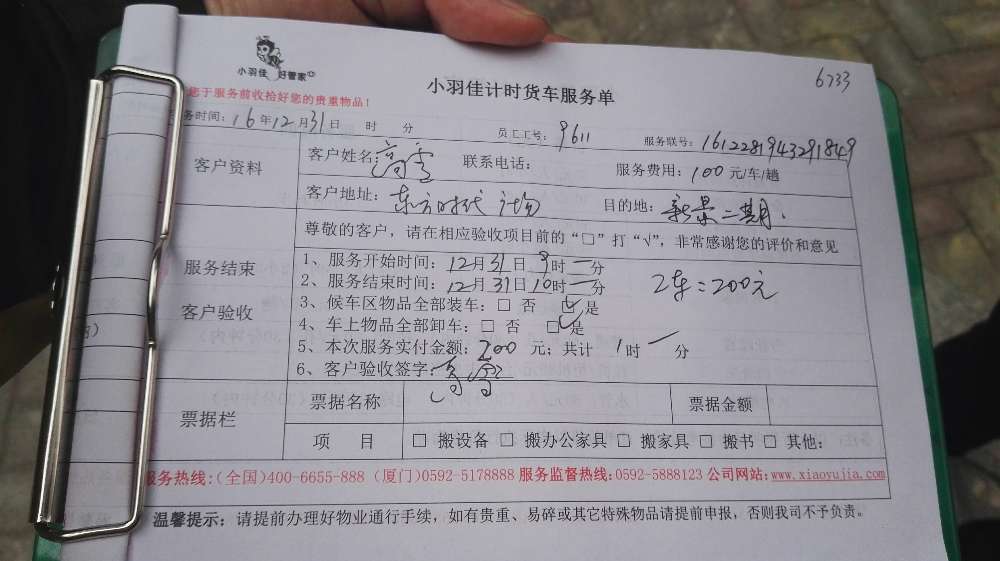 6733
小羽佳 好管家
小羽佳计时货车服务单
您于服务前收拾好您的贵重物品！
务时间：16年12月31日 时 分 员工工号：9611 服务联号：1612281943291849
客户资料
客户姓名： 联系电话： 服务费用：100元/车/趟
客户地址：东方时代广场 目的地：新景二期
服务结束
客户验收
尊敬的客户，请在相应验收项目前的“□”打“√”，非常感谢您的评价和意见
1、服务开始时间：12月31日9时一分
2、服务结束时间：12月31日10时一分
2车=200元
3、候车区物品全部装车：□ 否 ☑是
4、车上物品全部卸车：□ 否 ☑是
5、本次服务实付金额：200 元；共计 1时一分
6、客户验收签字：
票据栏
票据名称 票据金额
项 目 □ 搬设备 □ 搬办公家具 □ 搬家具 □ 搬书 □ 其他：
服务热线：（全国）400-6655-888（厦门）0592-5178888 服务监督热线：0592-5888123 公司网站：www.xiaoyujia.com
温馨提示：请提前办理好物业通行手续，如有贵重、易碎或其它特殊物品请提前申报，否则我司不予负责。